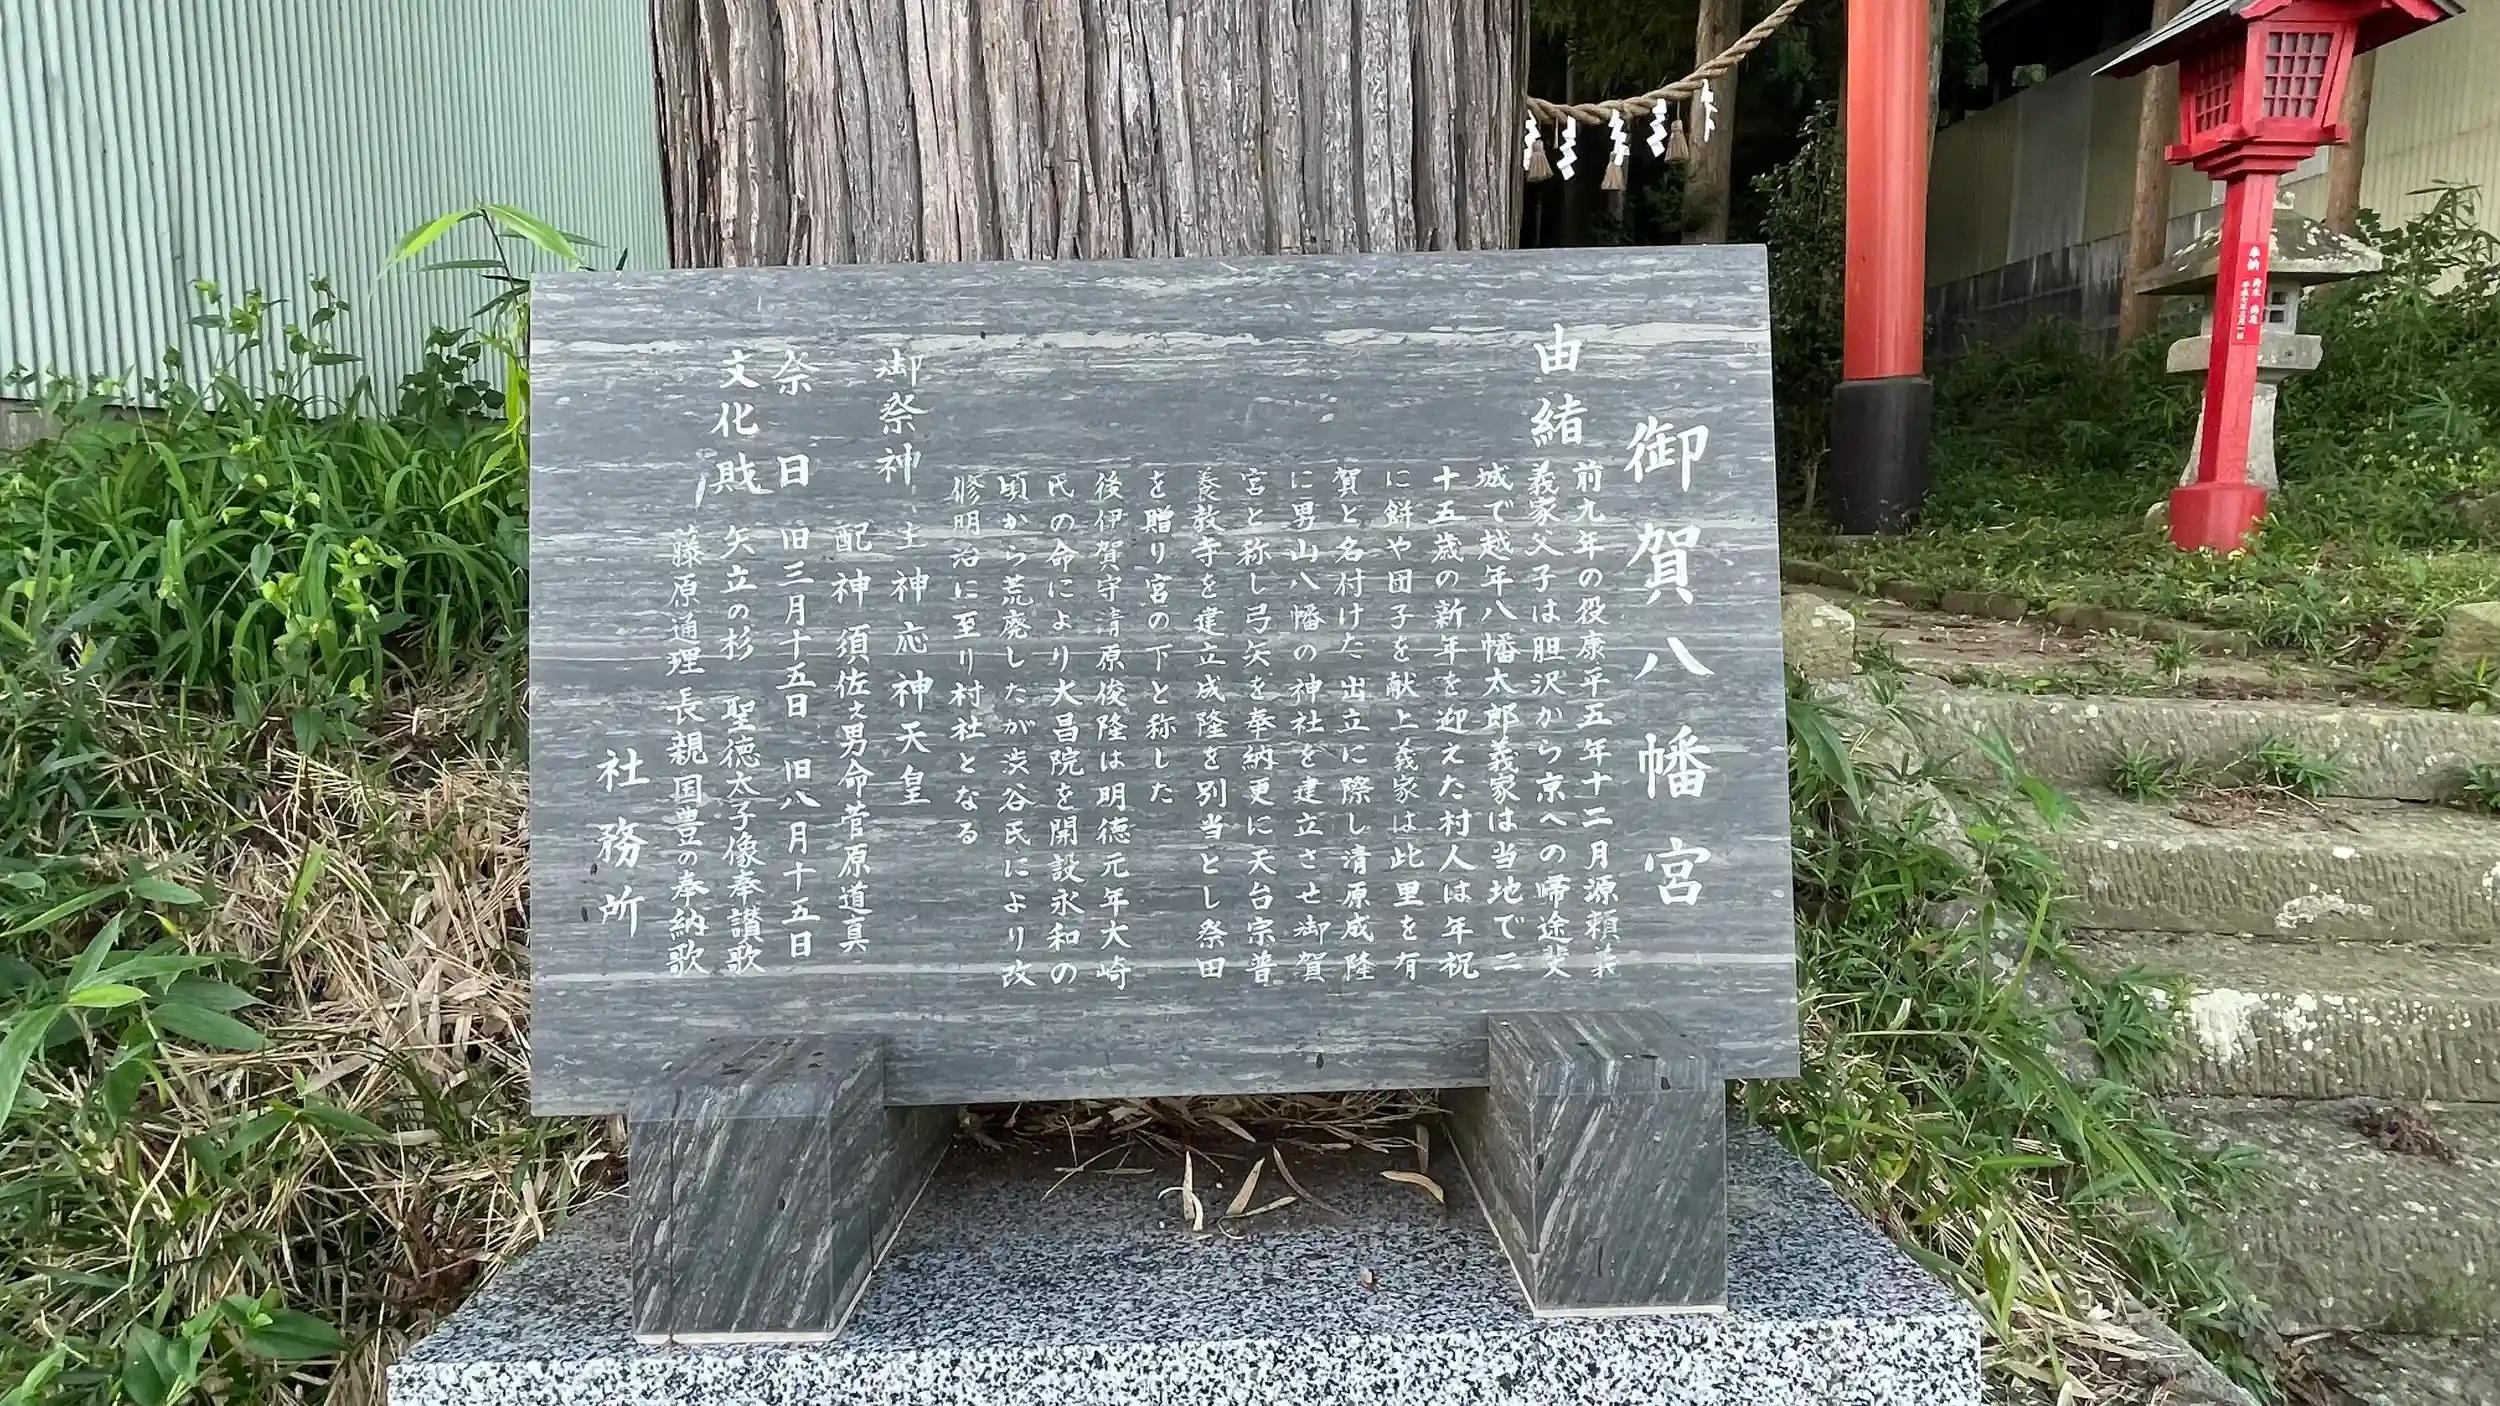 御賀八幡宮
由緒
前九年の役康平五年十二月源頼義
義家父子は胆沢から京への帰途斐
城で越年八幡太郎義家は当地で二
十五歳の新年を迎えた村人は年祝
に餅や団子を献上義家は此里を有
賀と名付けた出立に際し清原成隆
に男山八幡の神社を建立させ御賀
宮と称し弓矢を奉納更に天台宗普
養教寺を建立成隆を別当とし祭田
を贈り宮の下と称した
後伊賀守清原俊隆は明徳元年大崎
氏の命により大昌院を開設永和の
頃から荒廃したが渋谷氏により改
修明治に至り村社となる
御祭神 主神 応神天皇
配神 須佐之男命菅原道真
祭日 旧三月十五日 旧八月十五日
文化財 矢立の杉 聖徳太子像奉讃歌
藤原通理 長親 国豊の奉納歌
社務所
奉納